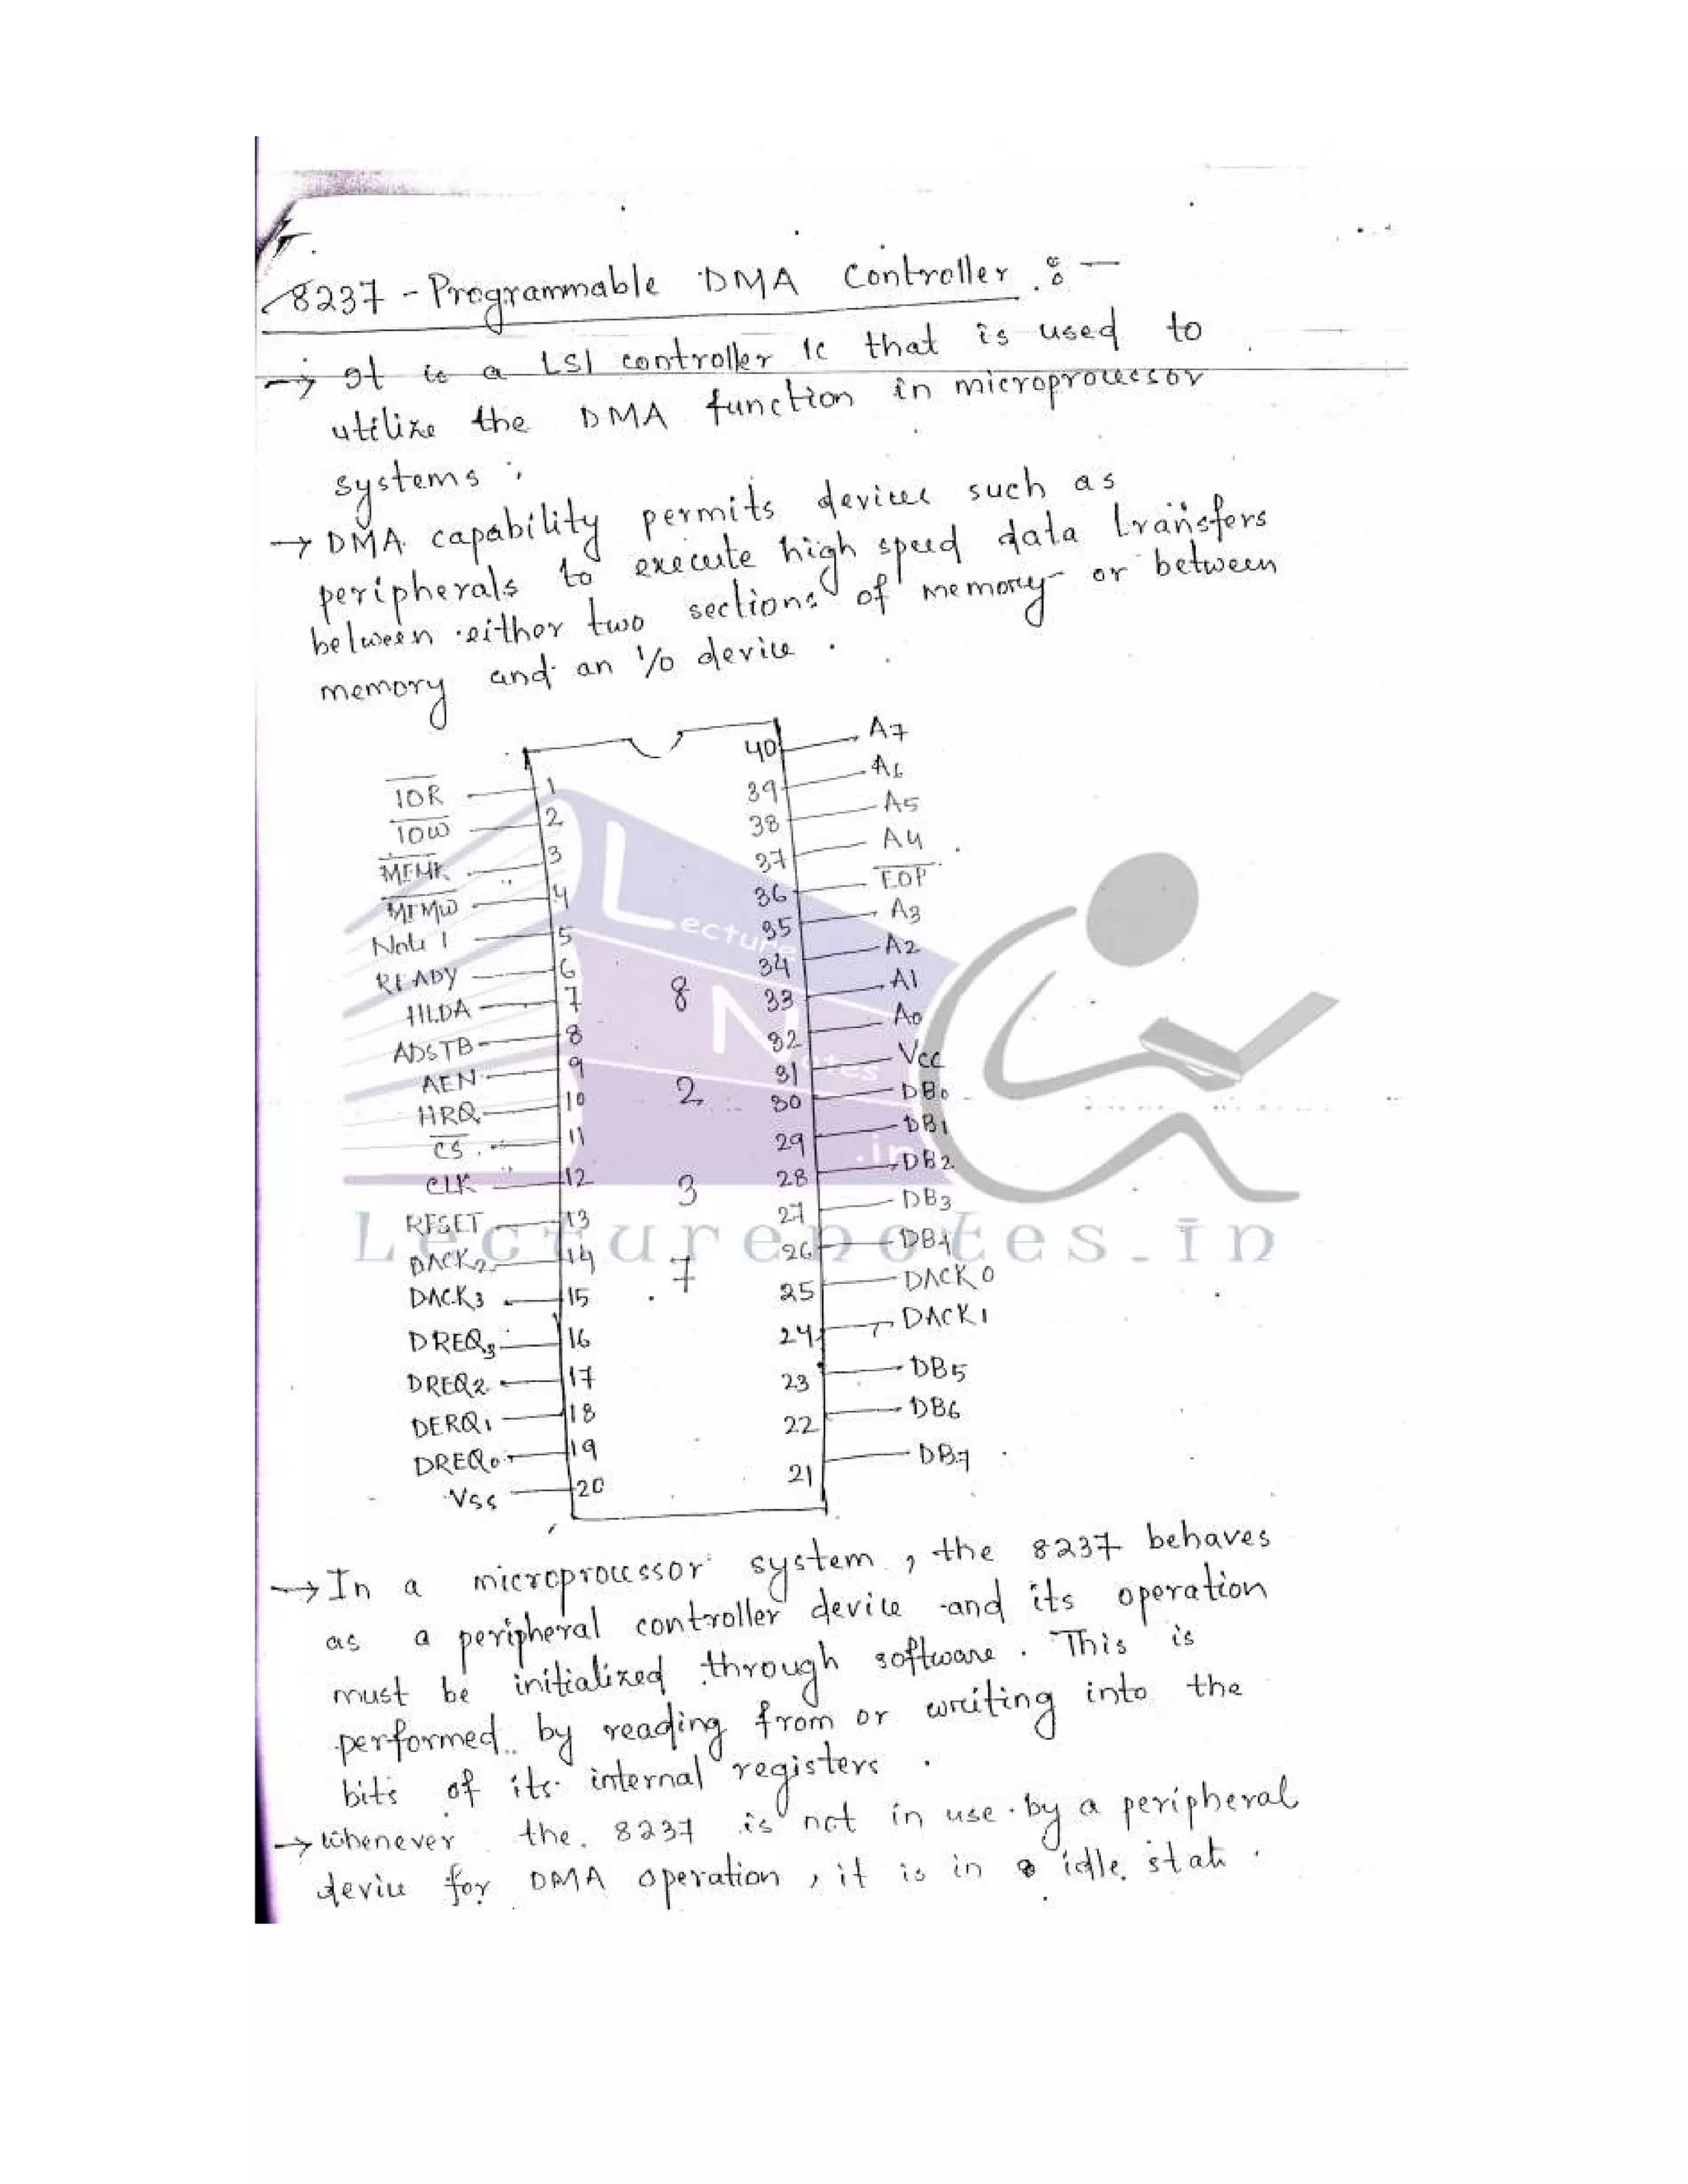 8237 - Programmable DMA Controller :-
→ It is a LSI controller IC that is used to
utilize the DMA function in microprocessor
systems.
→ DMA capability permits devices such as
peripherals to execute high speed data transfers
between either two sections of memory or between
memory and an I/o device.
40 A7
IOR 1
39 A6
IOW 2
38 A5
MEMR 3
37 A4
MEMW 4
36 EOP
Note 1 5
35 A3
READY 6
34 A2
HLDA 7
33 A1
ADSTB 8
32 A0
AEN 9
31 Vcc
HRQ 10
30 DB0
CS 11
29 DB1
CLK 12
28 DB2
RESET 13
27 DB3
DACK2 14
26 DB4
DACK3 15
25 DACK0
DREQ3 16
24 DACK1
DREQ2 17
23 DB5
DERQ1 18
22 DB6
DREQ0 19
21 DB7
Vss 20
8
2
3
7
Lecture
Notes
.in
Lecturenotes.in
→ In a microprocessor system, the 8237 behaves
as a peripheral controller device and its operation
must be initialized through software. This is
performed by reading from or writing into the
bits of its internal registers.
→ whenever the 8237 is not in use by a peripheral
device for DMA operation, it is in idle state.